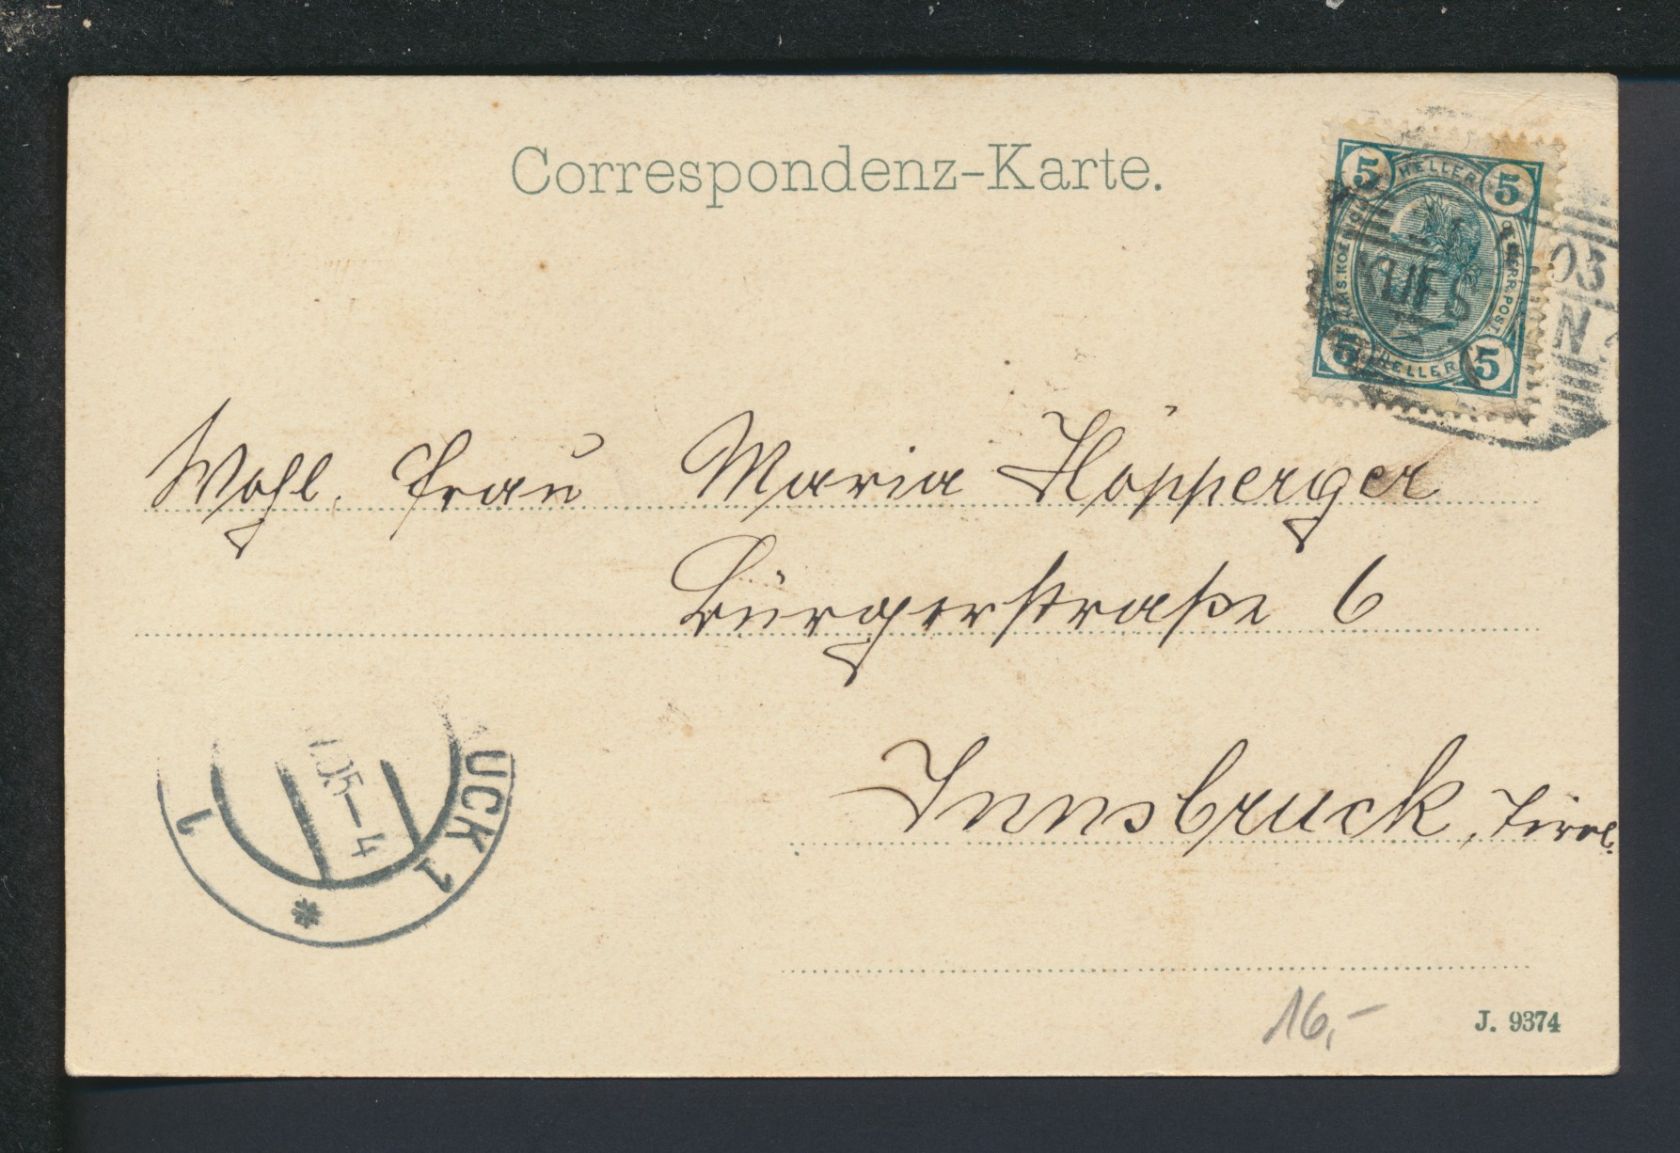 Correspondenz-Karte.
5 HELLER 5
KAIS. KOEN. OESTERR. POST.
5 HELLER 5
KUFS
05
N.
Wohl. Frau Maria Höpperger
Bürgerstraße 6
Innsbruck, Tirol.
UCK 1
05-4
1
*
16,-
J. 9374